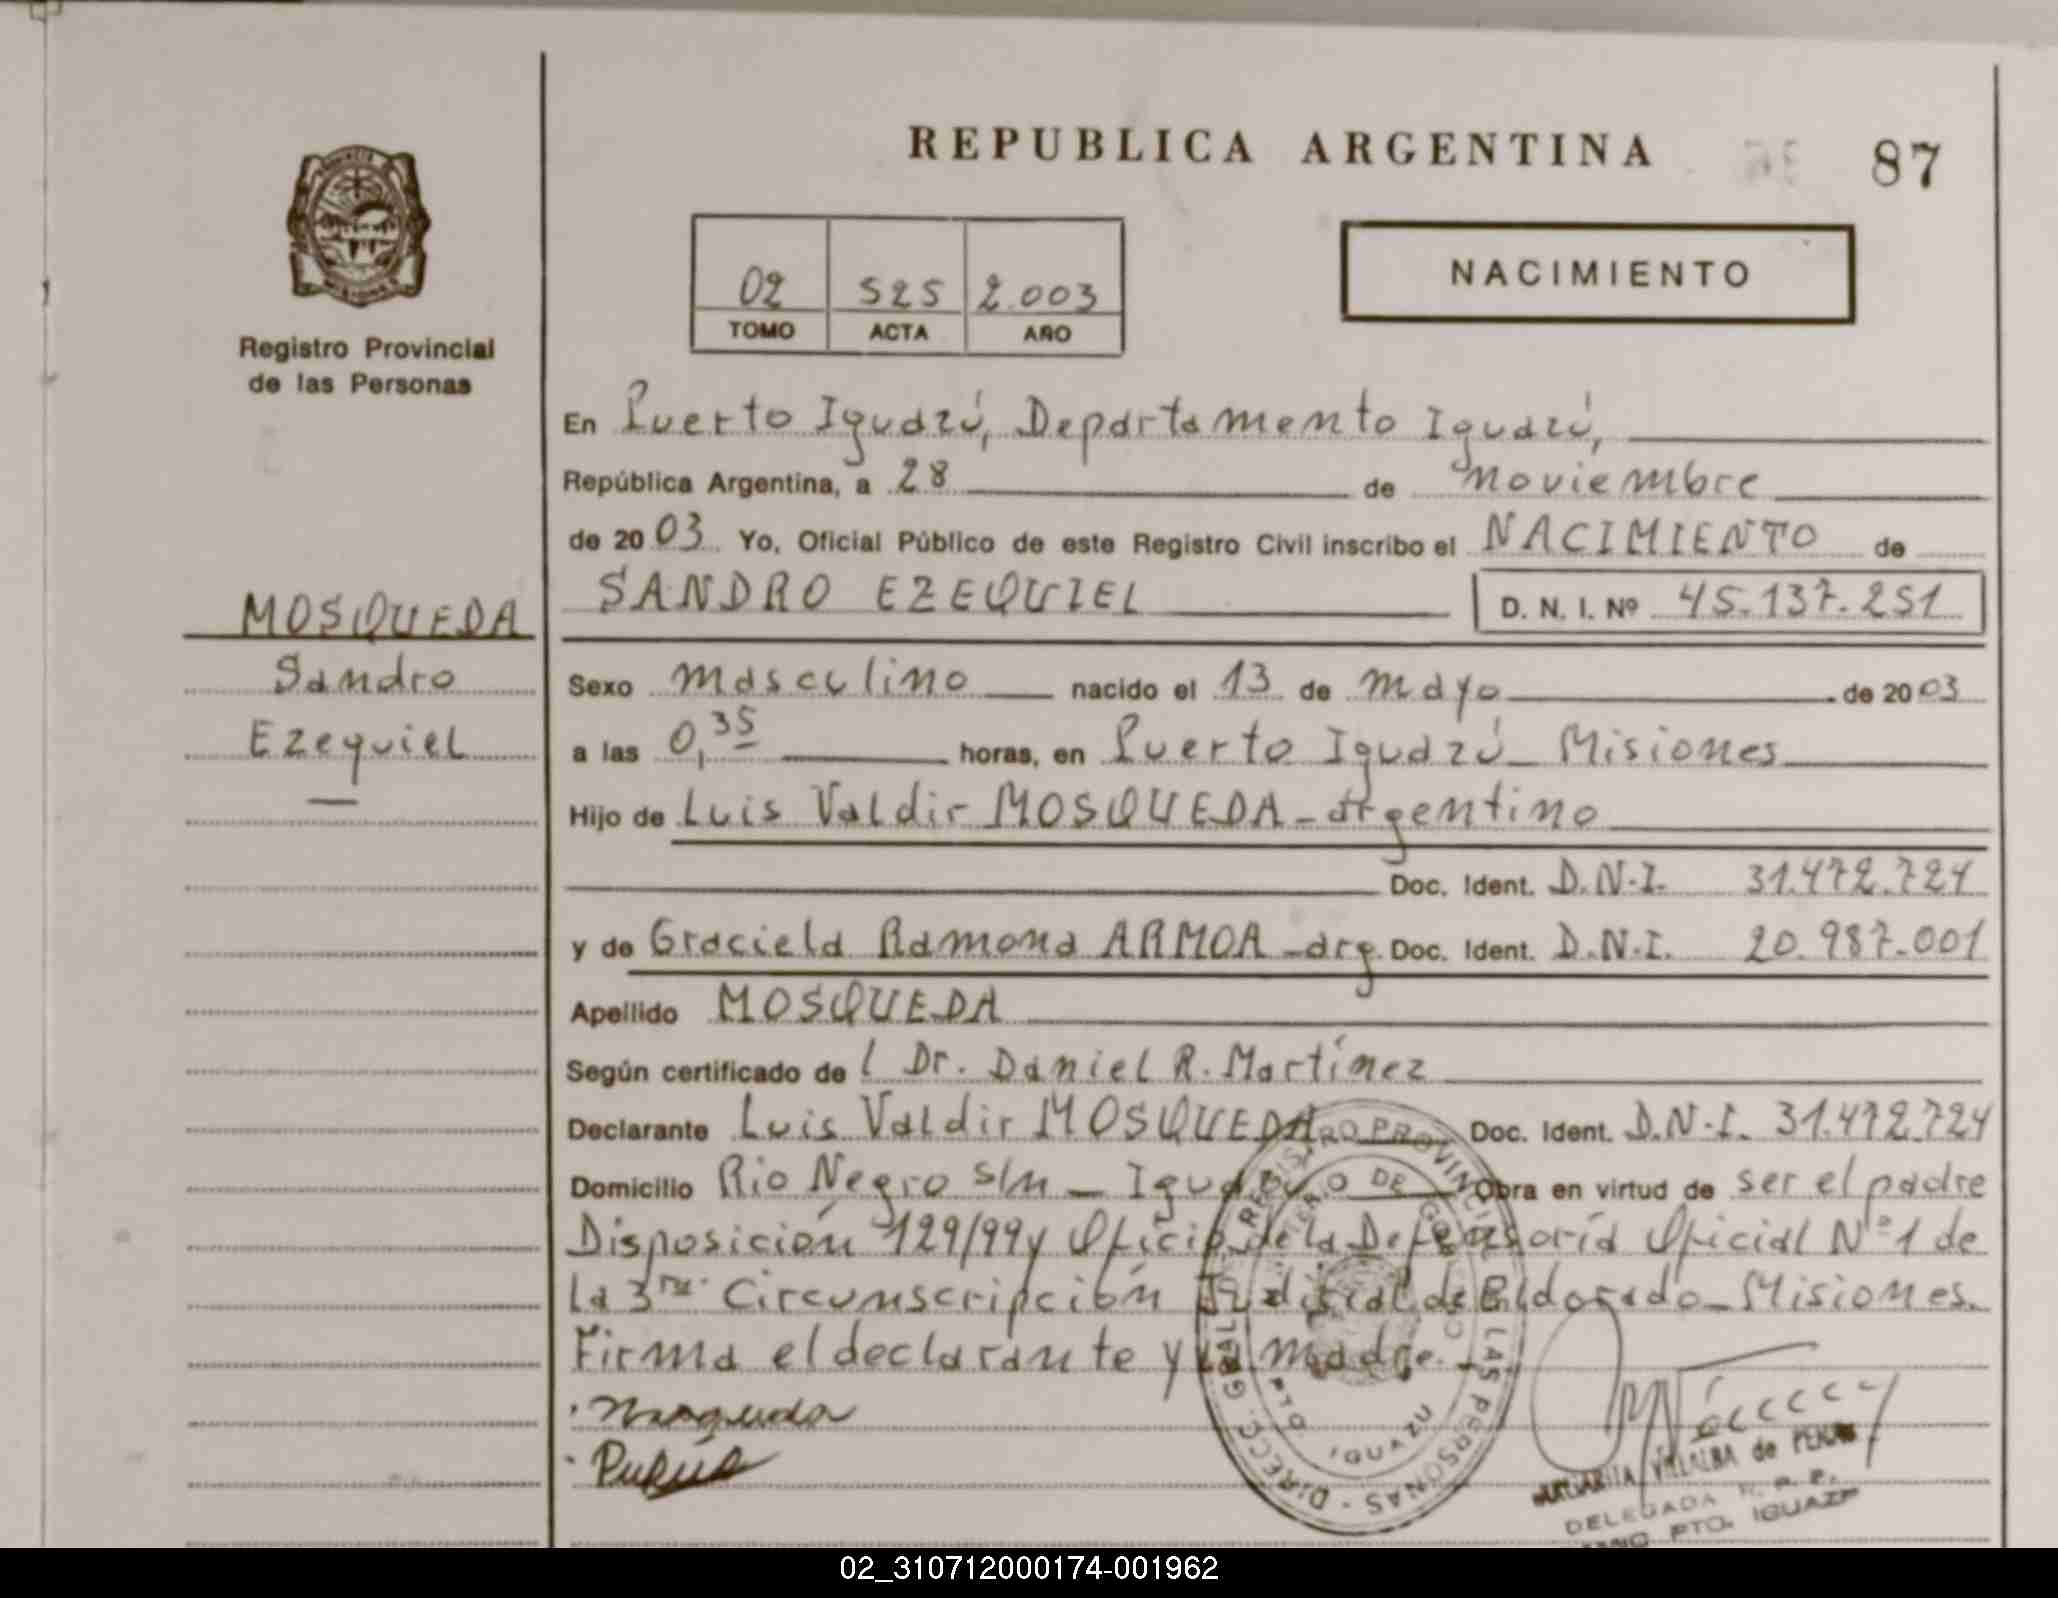 REPUBLICA ARGENTINA
87
NACIMIENTO
02 525 2.003
TOMO ACTA AÑO
Registro Provincial
de las Personas
MOSQUEDA
Sandro
Ezequiel
En Puerto Iguazú, Departamento Iguazú,
República Argentina, a 28 de noviembre
de 2003 Yo, Oficial Público de este Registro Civil inscribo el NACIMIENTO de
SANDRO EZEQUIEL D. N. I. Nº 45.137.251
Sexo masculino nacido el 13 de mayo de 2003
a las 0,35 horas, en Puerto Iguazú - Misiones
Hijo de Luis Valdir MOSQUEDA - argentino
Doc. Ident. D.N.I. 31.472.724
y de Graciela Ramona ARMOA - arg. Doc. Ident. D.N.I. 20.987.001
Apellido MOSQUEDA
Según certificado de l Dr. Daniel R. Martínez
Declarante Luis Valdir MOSQUEDA Doc. Ident. D.N.I. 31.472.724
Domicilio Rio Negro s/n - Iguazú Obra en virtud de ser el padre
Disposición 129/99 y Oficio de la Defensoría Oficial Nº 1 de
la 3ra. Circunscripción Judicial de Eldorado - Misiones.
Firma el declarante y la madre.-
Mosqueda
DIRECC. GRAL. DE REGISTRO PROVINCIAL DE LAS PERSONAS
MINISTERIO DE GOBIERNO
PTO IGUAZU
VILLALBA de
DELEGADA R. P. P.
PTO. IGUAZU
02_310712000174-001962